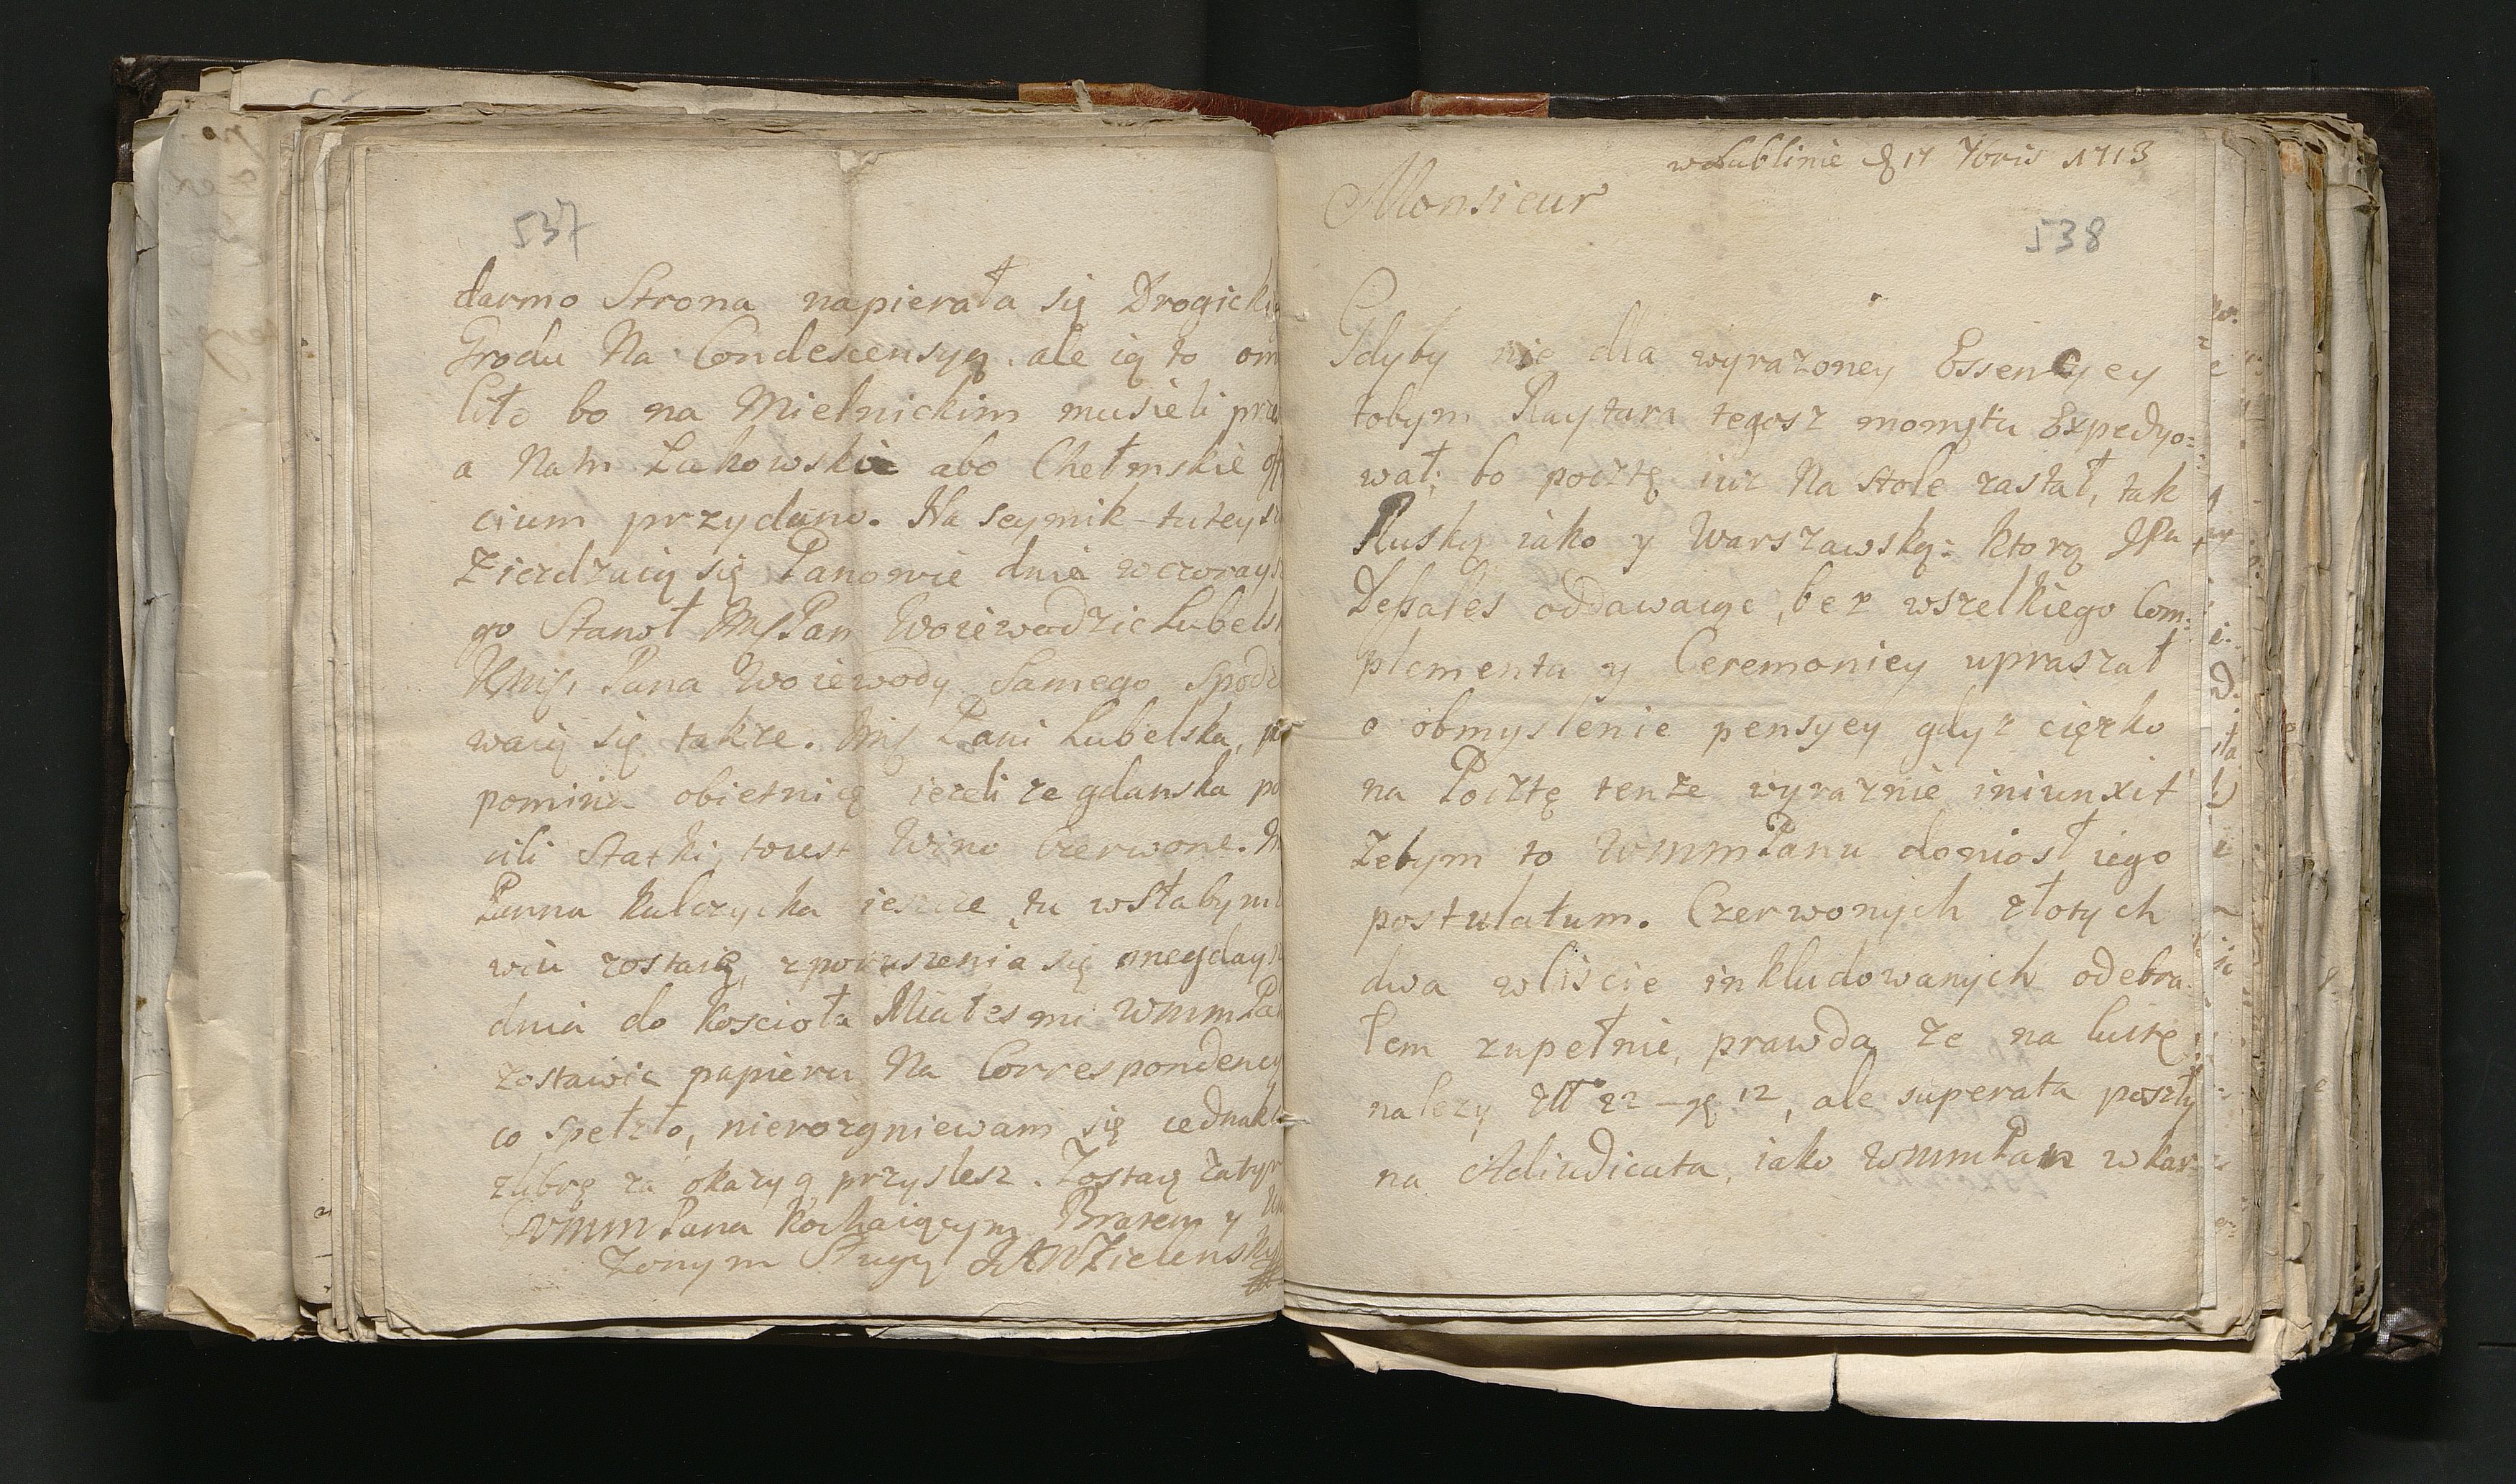 537
darmo Strona napierała się Drogicki
Grodu Na Condescensyą. ale ią to om
liło bo na Mielnickim musieli prze
a Nam Łukowskie abo Chełmskie off
cium przydano. Na seymik tuteysz
Zieżdzaią się Panowie dnia wczorays
go Stanoł Jmsc Pan Woiewodzic Lubelsk
Pana Woiewody Samego Spodz
waią się także. Jmsc Pani Lubelska, pr
pomina obietnicę ieżeli ze gdanska po
cili Statki, toiest Wino Czerwone.
Panna Kulczycka ieszcze tu wsłabym
wiu zostaię, zporuszenia się onegdays
dnia do Koscioła Miałes mi WmmPa
zostawić papieru Na Correspondency
co spełzło, nierozgniewam się iednak
zlibrę za okazyą przyslesz. Zostaię zatym
WmmPana Kochaiącym Bratem y
żonym Sługą JANZielensky
w Lublinie d 17 7bris 1713
Monsieur
538
Gdyby nie dla wyrażoney Essencyey
tobym Raytara tegosz momętu Expedyo=
wał; bo pocztę iuż Na stole zastał, tak
Ruską iako y Warszawską: ktorą JPa
Dessales oddawaiąc, bez wszelkiego Com:
plementu y Ceremoniey upraszał
o obmyslenie pensyey gdyż cięzko
na Pocztę tenże wyraznie iniunxit
Żebym to WmmPanu doniosł iego
postulatum. Czerwonych złotych
dwa wliscie inkludowanych odebra
łem zupełnie, prawda że na luszę
należy złł 22 – gę 12, ale superata poszły
na Adiudicata, iako WmmPan w kar